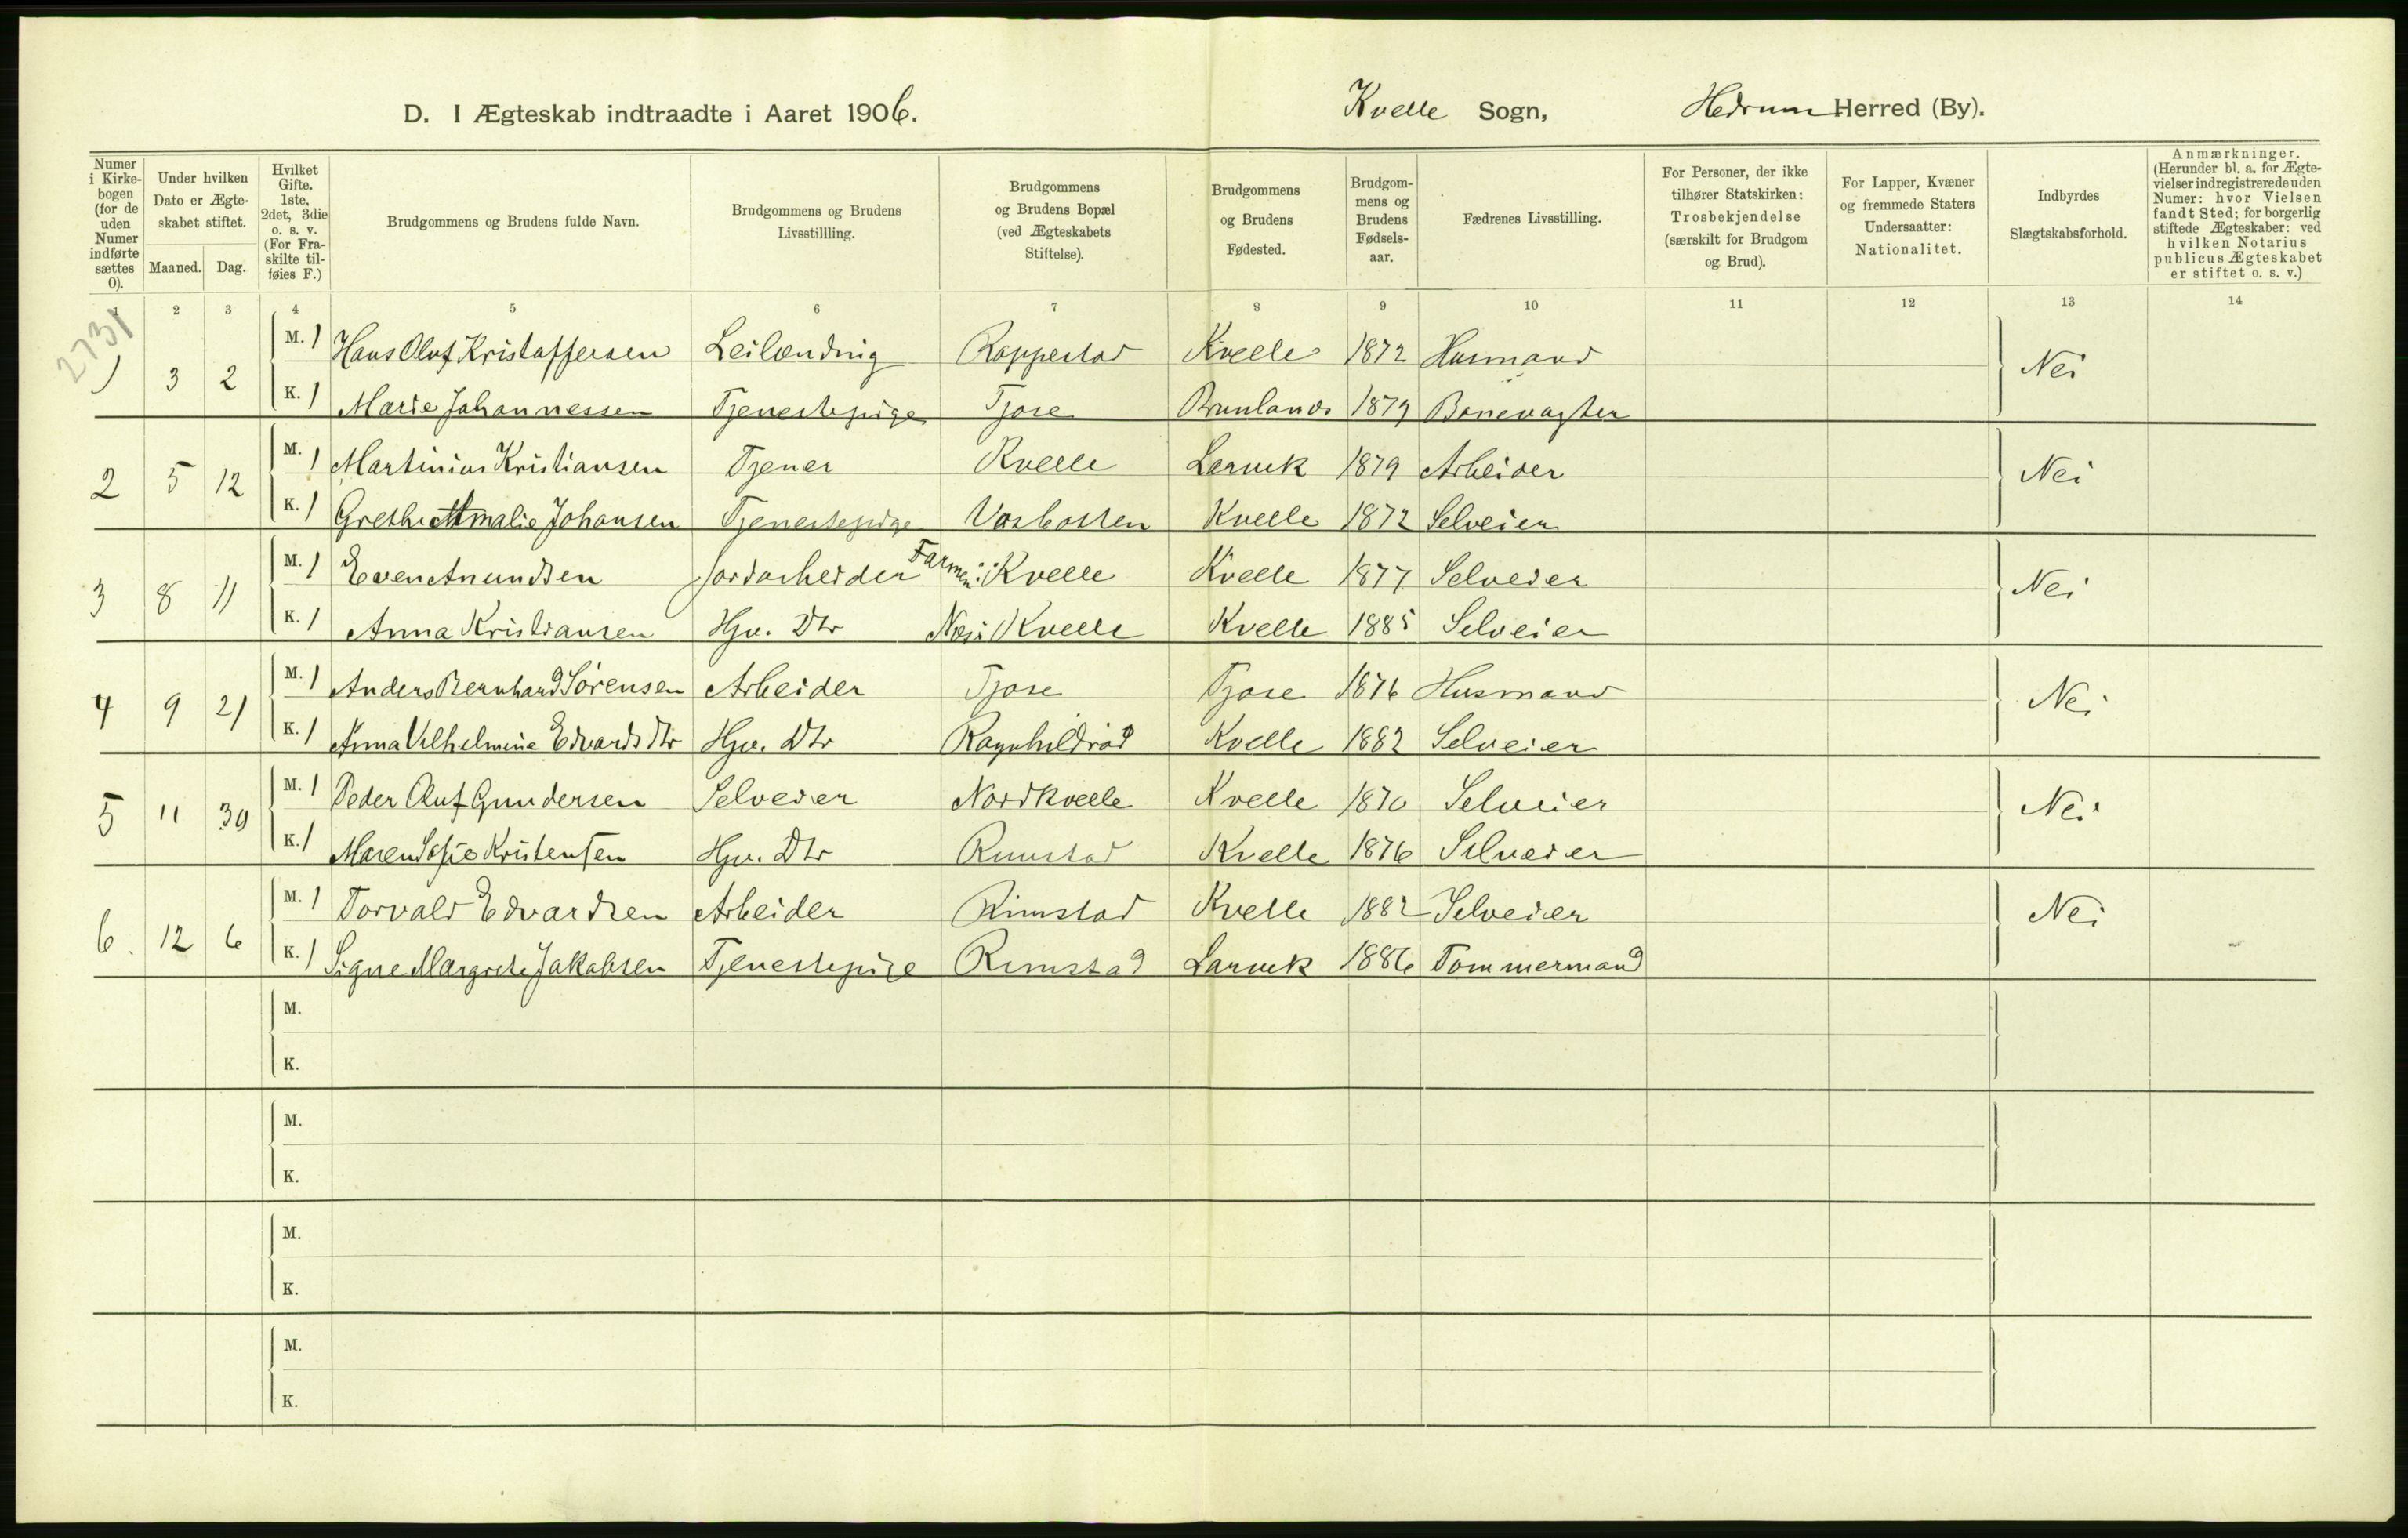 D. I Ægteskab indtraadte i Aaret 1906. Kvelle Sogn, Hedrum Herred (By).
Numer i Kirkebogen (for de uden Numer indførte sættes 0).
Under hvilken Dato er Ægteskabet stiftet.
Maaned. Dag.
Hvilket Gifte. 1ste, 2det, 3die o. s. v. (For Fraskilte tilføies F.)
Brudgommens og Brudens fulde Navn.
Brudgommens og Brudens Livsstillling.
Brudgommens og Brudens Bopæl (ved Ægteskabets Stiftelse).
Brudgommens og Brudens Fødested.
Brudgommens og Brudens Fødselsaar.
Fædrenes Livsstilling.
For Personer, der ikke tilhører Statskirken: Trosbekjendelse (særskilt for Brudgom og Brud).
For Lapper, Kvæner og fremmede Staters Undersaatter: Nationalitet.
Indbyrdes Slægtskabsforhold.
Anmærkninger. (Herunder bl. a. for Ægtevielser indregistrerede uden Numer: hvor Vielsen fandt Sted; for borgerlig stiftede Ægteskaber: ved hvilken Notarius publicus Ægteskabet er stiftet o. s. v.)
1 2 3 4 5 6 7 8 9 10 11 12 13 14
2731
1 3 2 M. 1 Hans Oluf Kristoffersen Leilænding Rappestad Kvelle 1872 Husmand Nei
K. 1 Marie Johannessen Tjenestepige Tjose Brunlands 1879 Banevagter
2 5 12 M. 1 Martinius Kristiansen Tjener Kvelle Larvik 1879 Arbeider Nei
K. 1 Grethe Amalie Johansen Tjenestepige Vasbotten Kvelle 1872 Selveier
3 8 11 M. 1 Even Anundsen Jordarbeider Farmen i Kvelle Kvelle 1877 Selveier Nei
K. 1 Anna Kristiansen Hjv. Dtr Næs i Kvelle Kvelle 1885 Selveier
4 9 21 M. 1 Anders Bernhard Sørensen Arbeider Tjose Tjose 1876 Husmand Nei
K. 1 Anna Vilhelmine Edvards Dtr Hjv. Dtr Ragnhildrød Kvelle 1882 Selveier
5 11 30 M. 1 Peder Oluf Gundersen Selveier Nordkvelle Kvelle 1870 Selveier Nei
K. 1 Maren Sofie Kristensen Hjv. Dtr Rimstad Kvelle 1876 Selveier
6. 12 6 M. 1 Torvald Edvardsen Arbeider Rimstad Kvelle 1882 Selveier Nei
K. 1 Signe Margrete Jakobsen Tjenestepige Rimstad Larvik 1886 Tømmermand
M.
K.
M.
K.
M.
K.
M.
K.